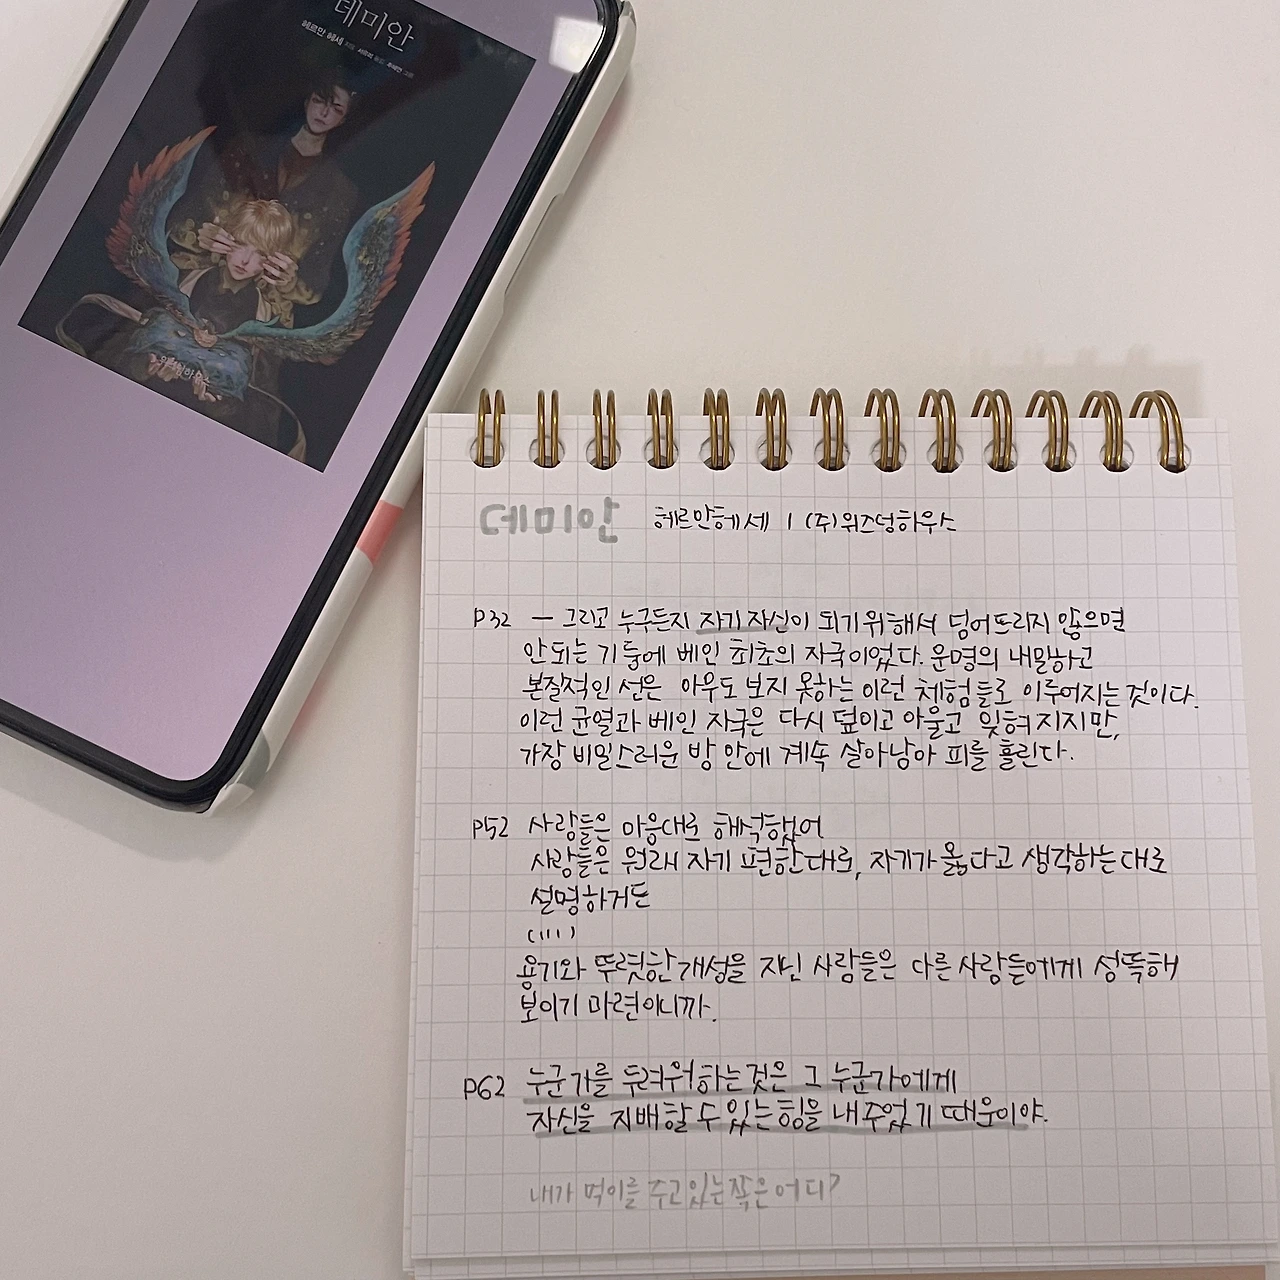 데미안
헤르만 헤세
위즈덤하우스
데미안 헤르만헤세 | (주)위즈덤하우스
P32 — 그리고 누구든지 자기자신이 되기위해서 넘어뜨리지 않으면
안되는 기둥에 베인 최초의 자국이었다. 운명의 내밀하고
본질적인 선은 아무도 보지 못하는 이런 체험들로 이루어지는 것이다.
이런 균열과 베인 자국은 다시 덮이고 아물고 잊혀지지만,
가장 비밀스러운 방 안에 계속 살아남아 피를 흘린다.
P52 사람들은 마음대로 해석했어
사람들은 원래 자기 편한대로, 자기가 옳다고 생각하는대로
설명하거든
(...)
용기와 뚜렷한 개성을 지닌 사람들은 다른 사람들에게 섬뜩해
보이기 마련이니까.
P62 누군가를 두려워하는것은 그 누군가에게
자신을 지배할 수 있는 힘을 내주었기 때문이야.
내가 먹이를 주고있는쪽은어디?